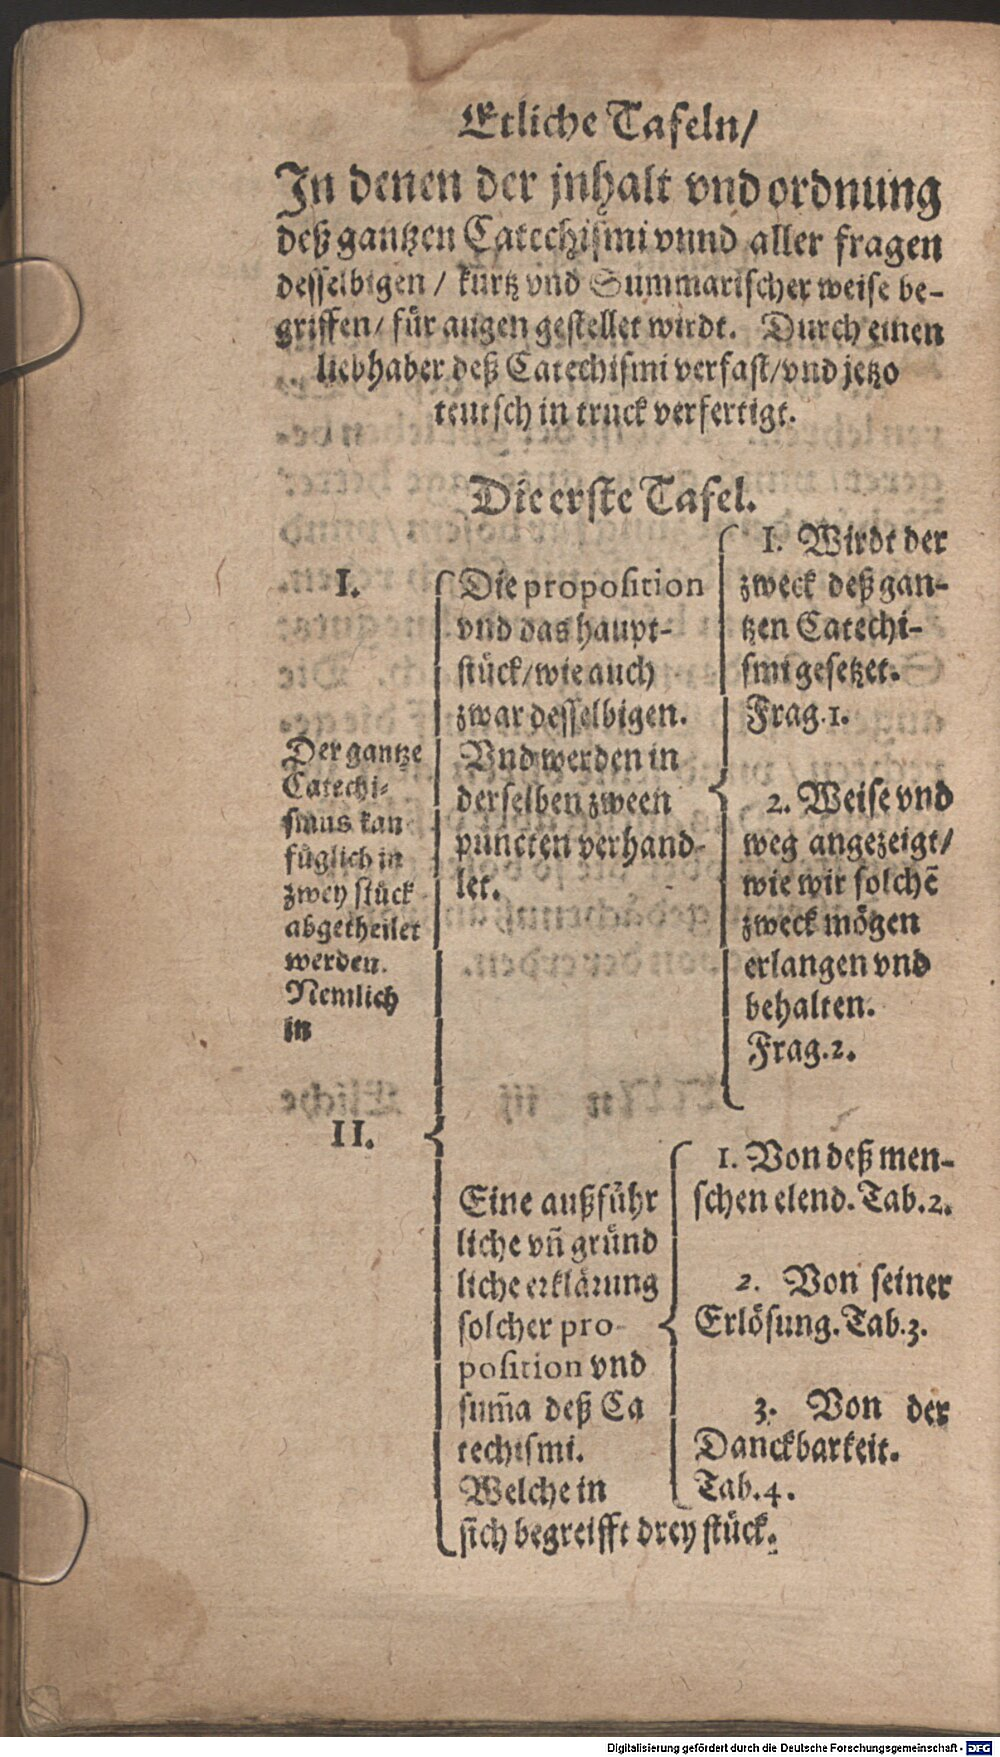 Etliche Tafeln/
In denen der jnhalt vnd ordnung
deß gantzen Catechismi vnnd aller fragen
desselbigen / kurtz vnd Summarischer weise be-
griffen/ für augen gestellet wirdt. Durch einen
liebhaber deß Catechismi verfast/vnd jetzo
teutsch in truck verfertigt.
Die erste Tafel.
Der gantze
Catechi-
smus kan
füglich in
zwey stück
abgetheilet
werden.
Nemlich
in
I.
Die proposition
vnd das haupt-
stück/wie auch
zwar desselbigen.
Vnd werden in
derselben zween
puncten verhand-
let.
1. Wirdt der
zweck deß gan-
tzen Catechi-
smi gesetzet.
Frag.1.
2. Weise vnd
weg angezeigt/
wie wir solchē
zweck mögen
erlangen vnd
behalten.
Frag.2.
II.
Eine außführ
liche vn̄ gründ
liche erklärung
solcher pro-
position vnd
sum̄a deß Ca
techismi.
Welche in
sich begreifft drey stück.
1. Von deß men-
schen elend. Tab.2.
2. Von seiner
Erlösung. Tab.3.
3. Von der
Danckbarkeit.
Tab.4.
Digitalisierung gefördert durch die Deutsche Forschungsgemeinschaft - DFG